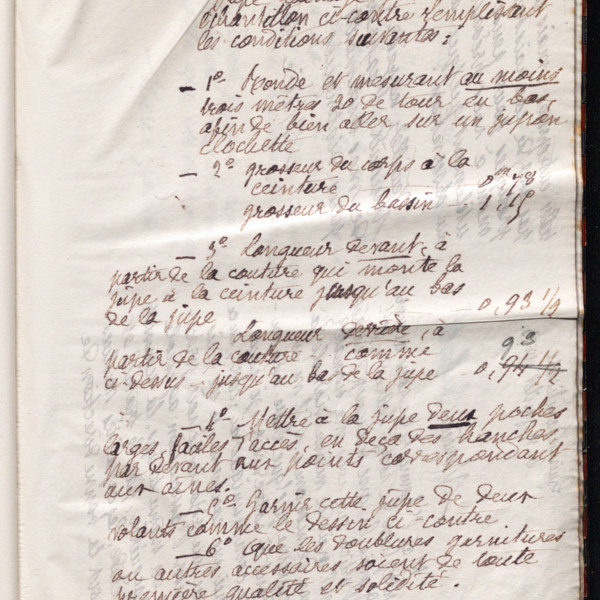 échantillon ci-contre remplissant
les conditions suivantes :
– 1° Ronde et mesurant au moins
trois mètres 20 de tour en bas,
afin de bien aller sur un jupon
clochette
– 2° grosseur du corps à la
ceinture 0m,78
grosseur du bassin 1,15
– 3° Longueur devant, à
partir de la couture qui monte la
jupe à la ceinture jusqu'au bas
de la jupe 0,93 1/2
Longueur derrière, à
93
partir de la couture comme
ci-dessus jusqu'au bas de la jupe 0,94 1/2
– 4° Mettre à la jupe deux poches
larges, faciles d'accès, en deçà des hanches,
par devant aux points correspondant
aux aines.
– 5° Garnir cette jupe de deux
volants comme le dessin ci-contre
– 6° Que les doublures garnitures
ou autres accessoires soient de toute
première qualité et solidité.